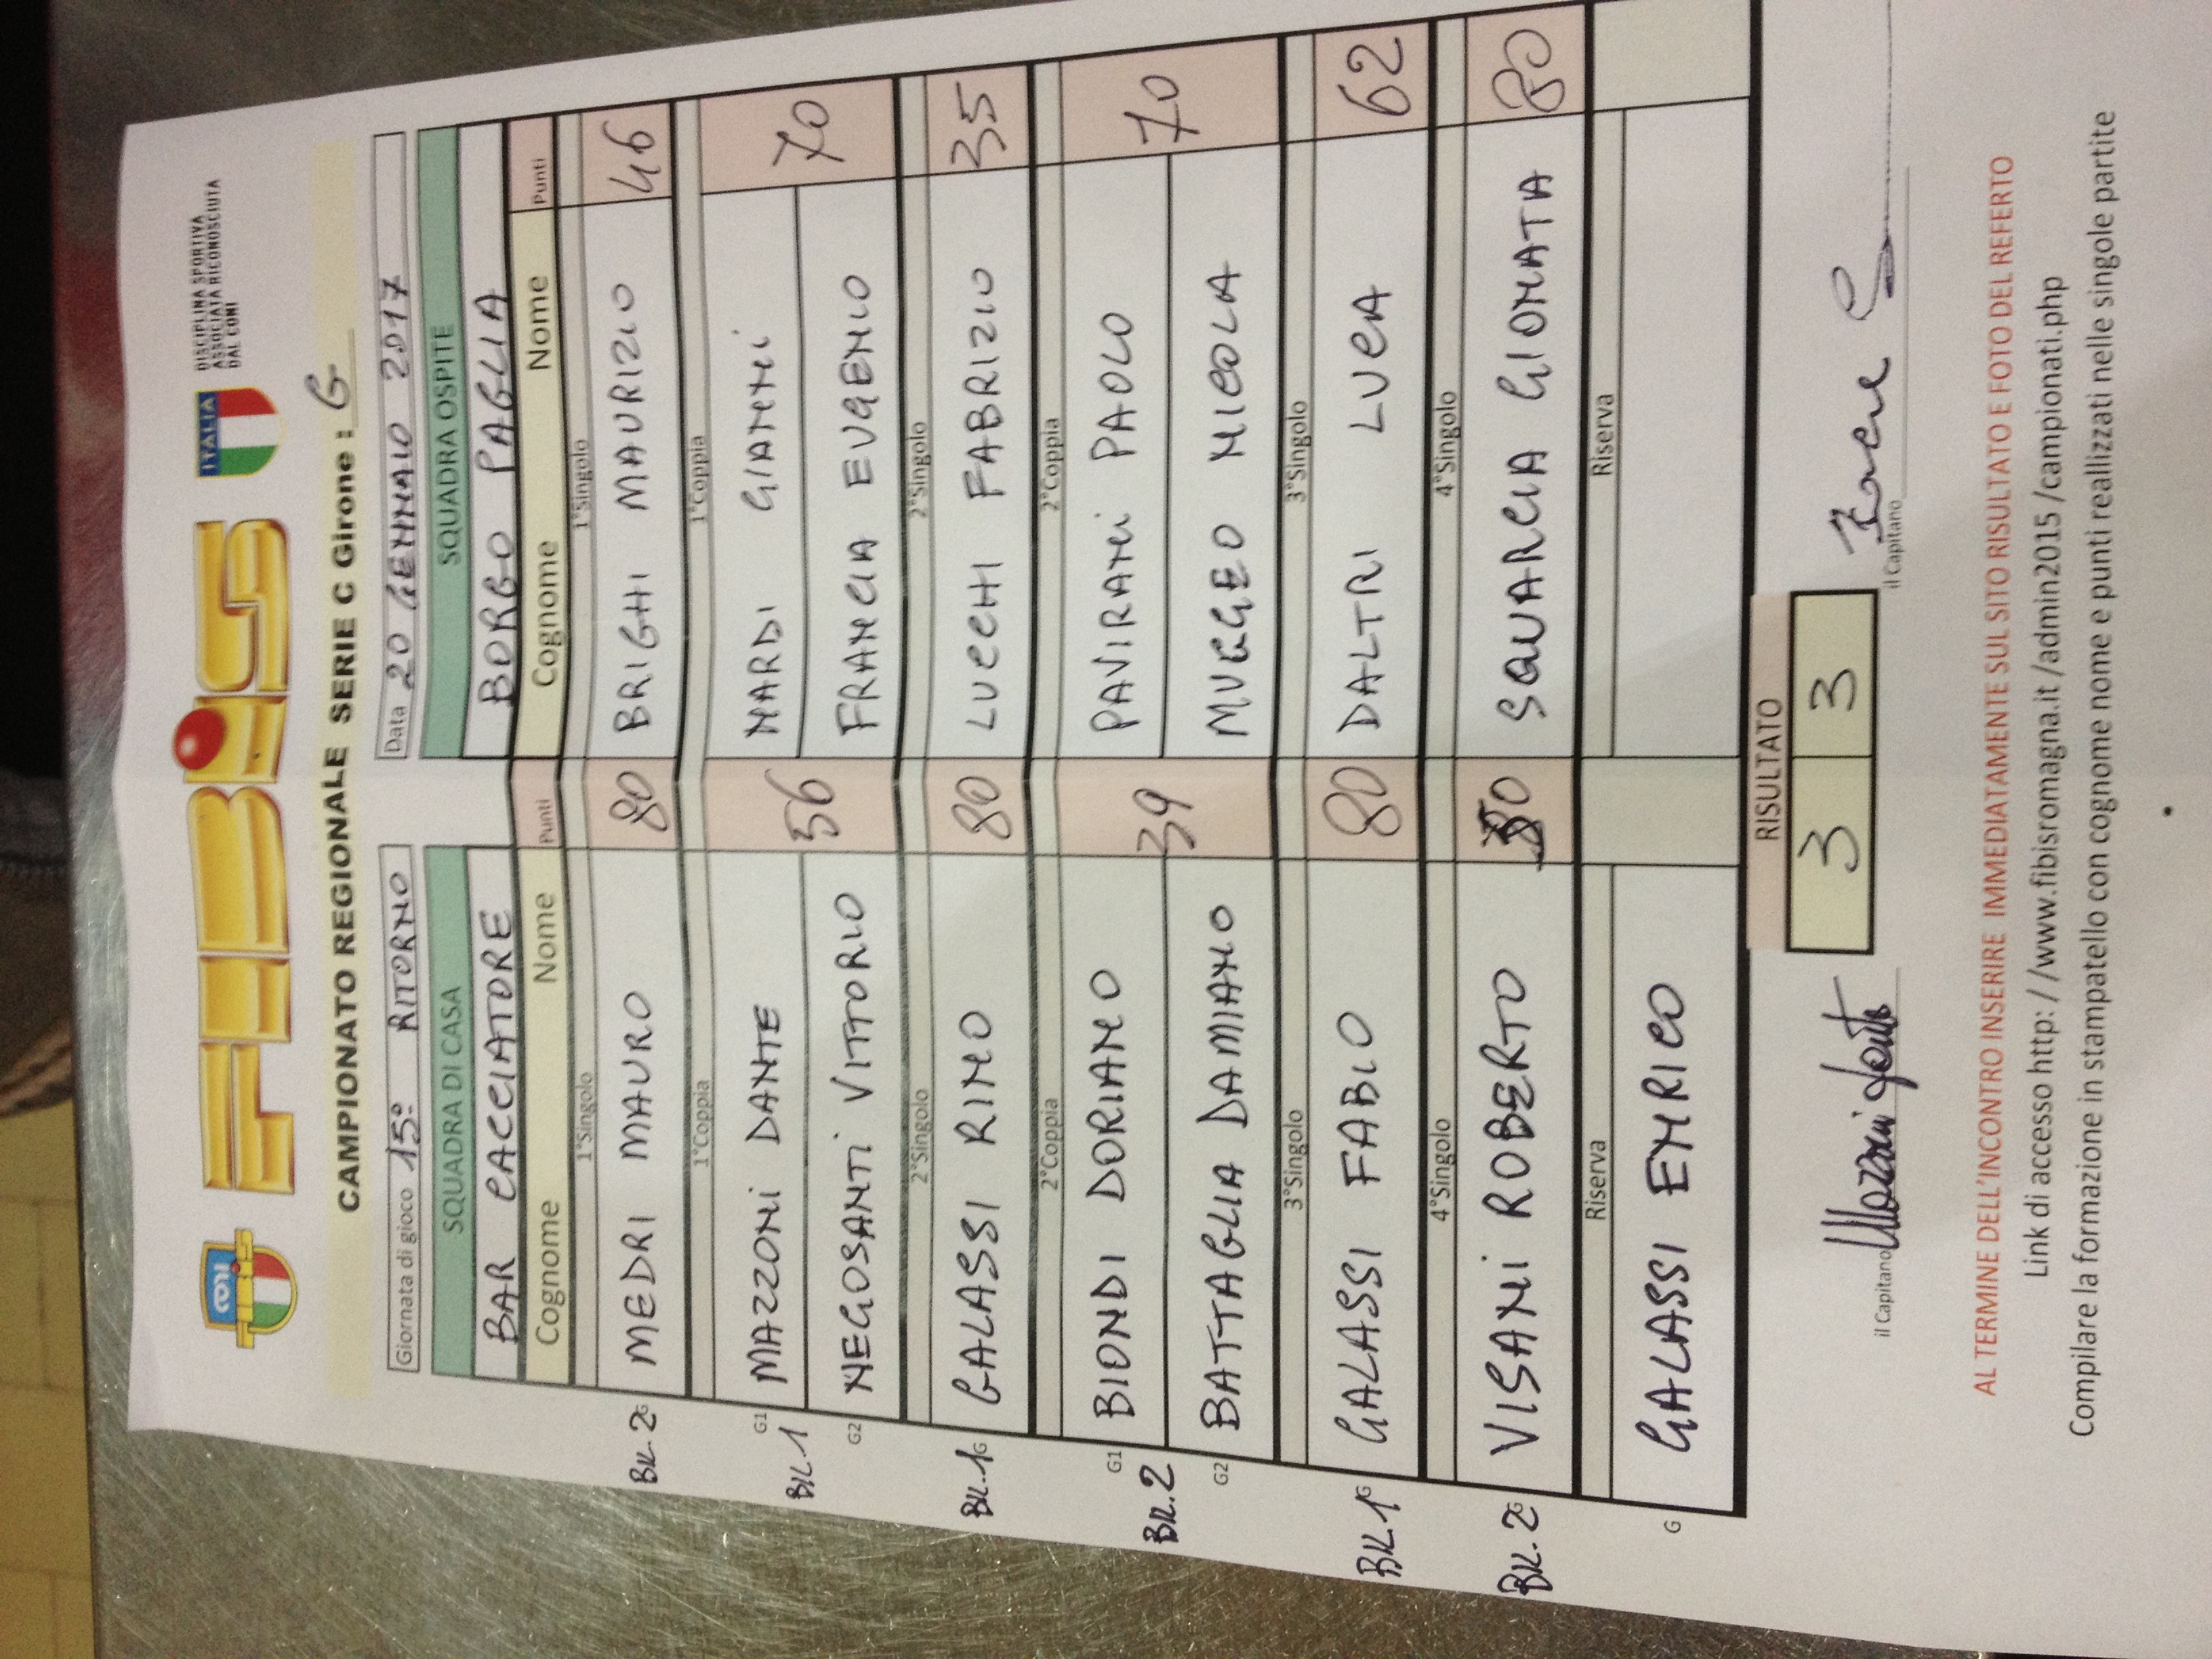 FIBiS
ITALIA
DISCIPLINA SPORTIVA
ASSOCIATA RICONOSCIUTA
DAL CONI
CAMPIONATO REGIONALE SERIE C Girone : G
Giornata di gioco 15° RITORNO Data 20 GENNAIO 2017
SQUADRA DI CASA SQUADRA OSPITE
BAR CACCIATORE BORGO PAGLIA
Cognome Nome Punti Cognome Nome Punti
1°Singolo 1°Singolo
BIL.2 G MEDRI MAURO 80 BRIGHI MAURIZIO 46
1°Coppia 1°Coppia
G1 MAZZONI DANTE NARDI GIANNI
BIL.1 56 70
G2 NEGOSANTI VITTORIO FRANCIA EUGENIO
2°Singolo 2°Singolo
BIL.1 G GALASSI RINO 80 LUCCHI FABRIZIO 35
2°Coppia 2°Coppia
G1 BIONDI DORIANO PAVIRANI PAOLO
BIL.2 39 70
G2 BATTAGLIA DAMIANO MUGGEO NICOLA
3°Singolo 3°Singolo
BIL.1 G GALASSI FABIO 80 DALTRI LUCA 62
4°Singolo 4°Singolo
BIL.2 G VISANI ROBERTO SQUARCIA GIONATA 80
Riserva Riserva
G GALASSI EMRICO
RISULTATO
3 3
il Capitano Mazzoni Dante il Capitano
AL TERMINE DELL'INCONTRO INSERIRE IMMEDIATAMENTE SUL SITO RISULTATO E FOTO DEL REFERTO
Link di accesso http: / /www.fibisromagna.it /admin2015 /campionati.php
Compilare la formazione in stampatello con cognome nome e punti reallizzati nelle singole partite